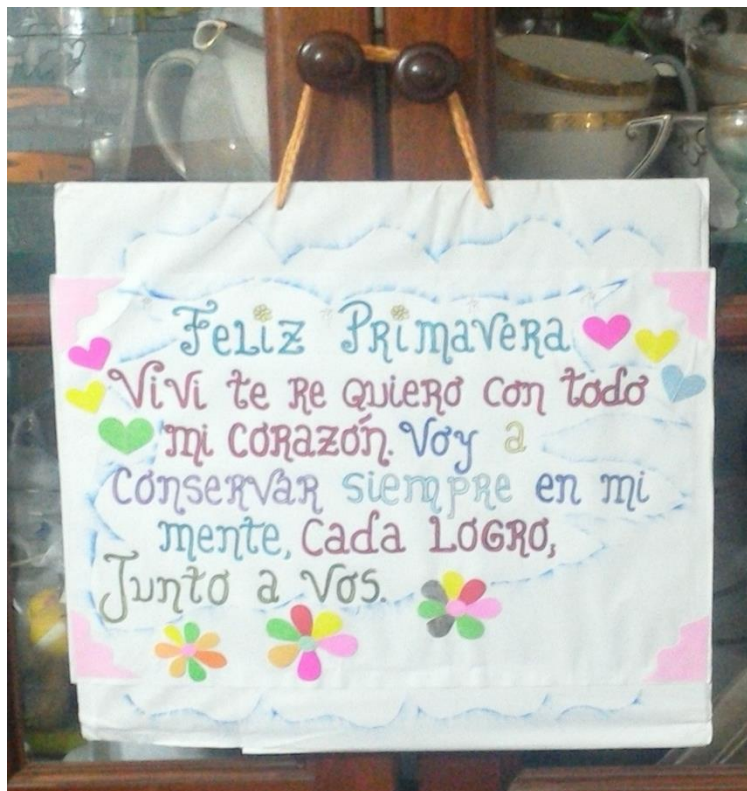 Feliz Primavera
Vivi te re quiero con todo
mi corazón. Voy a
conservar siempre en mi
mente, cada logro,
Junto a vos.